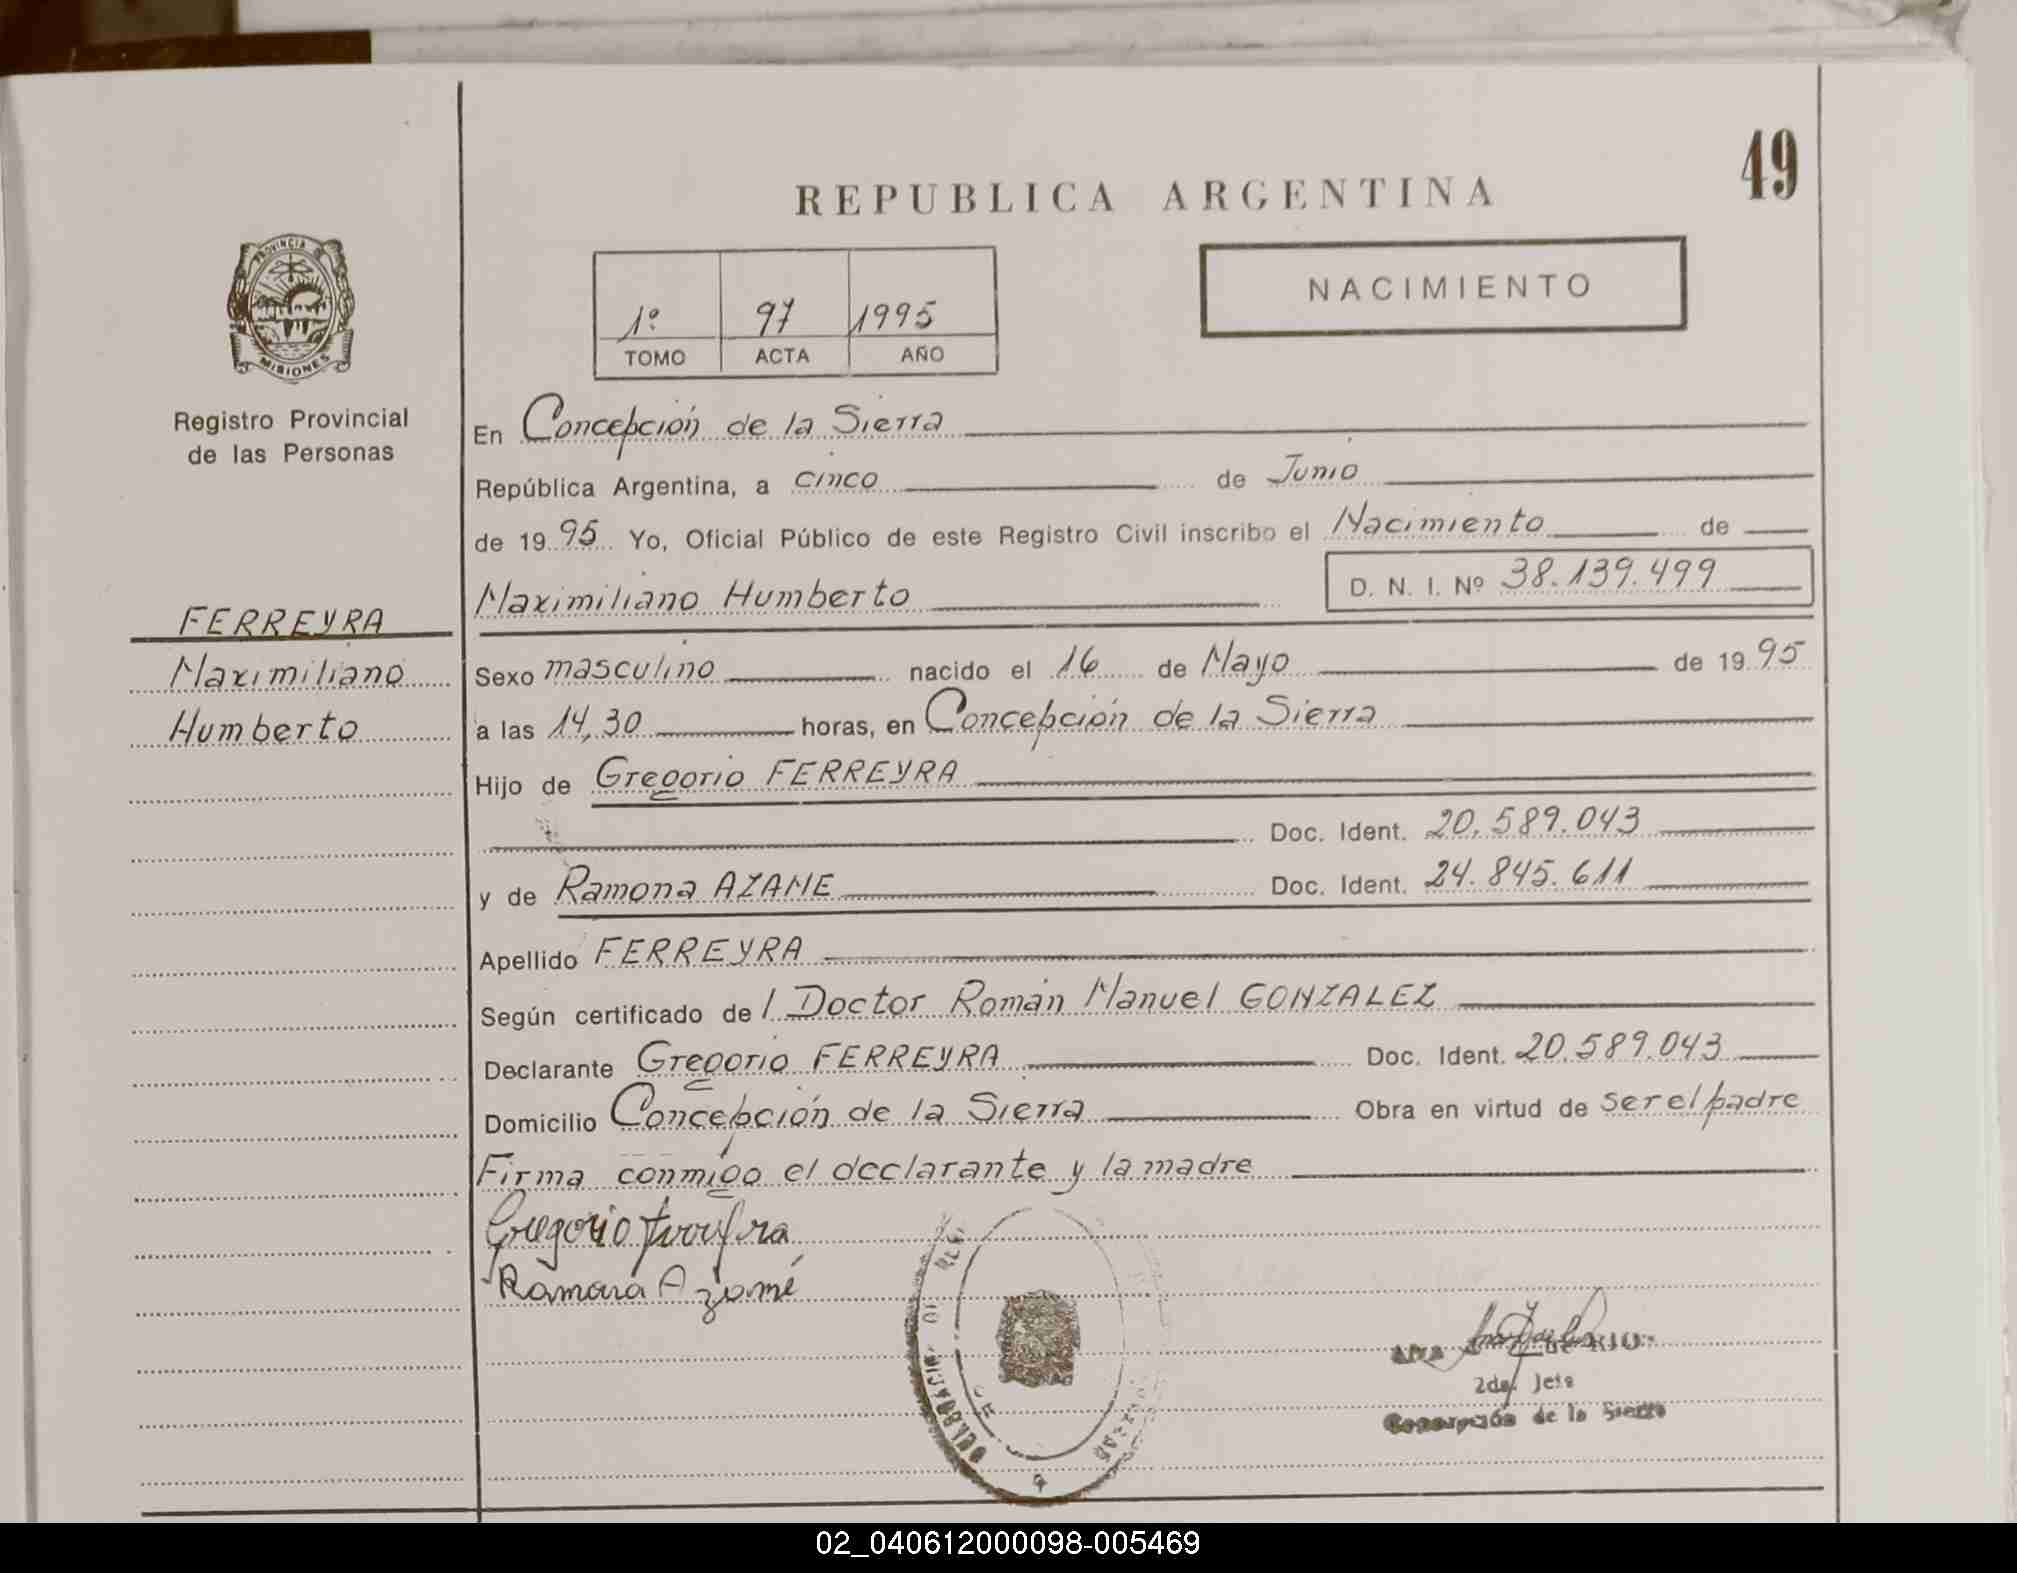 49
REPUBLICA ARGENTINA
PROVINCIA
MISIONES
Registro Provincial
de las Personas
1º 97 1995
TOMO ACTA AÑO
NACIMIENTO
En Concepción de la Sierra
República Argentina, a cinco de Junio
de 1995 Yo, Oficial Público de este Registro Civil inscribo el Nacimiento de
Maximiliano Humberto D. N. I. Nº 38.139.499
FERREYRA
Maximiliano
Humberto
Sexo masculino nacido el 16 de Mayo de 1995
a las 14,30 horas, en Concepción de la Sierra
Hijo de Gregorio FERREYRA
Doc. Ident. 20.589.043
y de Ramona AZAME Doc. Ident. 24.845.611
Apellido FERREYRA
Según certificado del Doctor Román Manuel GONZALEZ
Declarante Gregorio FERREYRA Doc. Ident. 20.589.043
Domicilio Concepción de la Sierra Obra en virtud de ser el padre
Firma conmigo el declarante y la madre
Gregorio Ferreyra
Ramona Azamé
2da. Jefe
Concepción de la Sierra
02_040612000098-005469